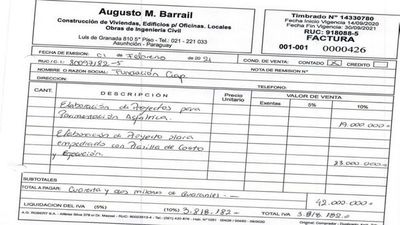 Augusto M. Barrail
Construcción de Viviendas, Edificios p/ Oficinas. Locales
Obras de Ingeniería Civil
Luis de Granada 810 5° Piso - Tel.: 021 - 221 033
Asunción - Paraguay
Timbrado N° 14330780
Fecha Inicio Vigencia 14/09/2020
Fecha Fin Vigencia 30/09/2021
RUC: 918088-5
FACTURA
001-001 0000426
FECHA DE EMISIÓN: 01 Febrero de 2021 COND. DE VENTA: CONTADO X CRÉDITO
R.U.C./C.I.: 80097182-5
NOMBRE O RAZÓN SOCIAL: Fundación Ciap NOTA DE REMISIÓN N°
CANT. DESCRIPCIÓN Precio Unitario VALOR DE VENTA
Exentas 5% 10%
Elaboración de Proyectos para
Pavimentación Asfáltica. 19.000.000=
Elaboración de Proyecto para
empedrado con Planilla de Costo
y Ejecución. 23.000.000=
SUBTOTALES:
TOTAL A PAGAR: Cuarenta y dos millones de Guaraníes 42.000.000=
LIQUIDACIÓN DEL IVA (5%) (10%) 3.818.182= TOTAL IVA: 3.818.182=